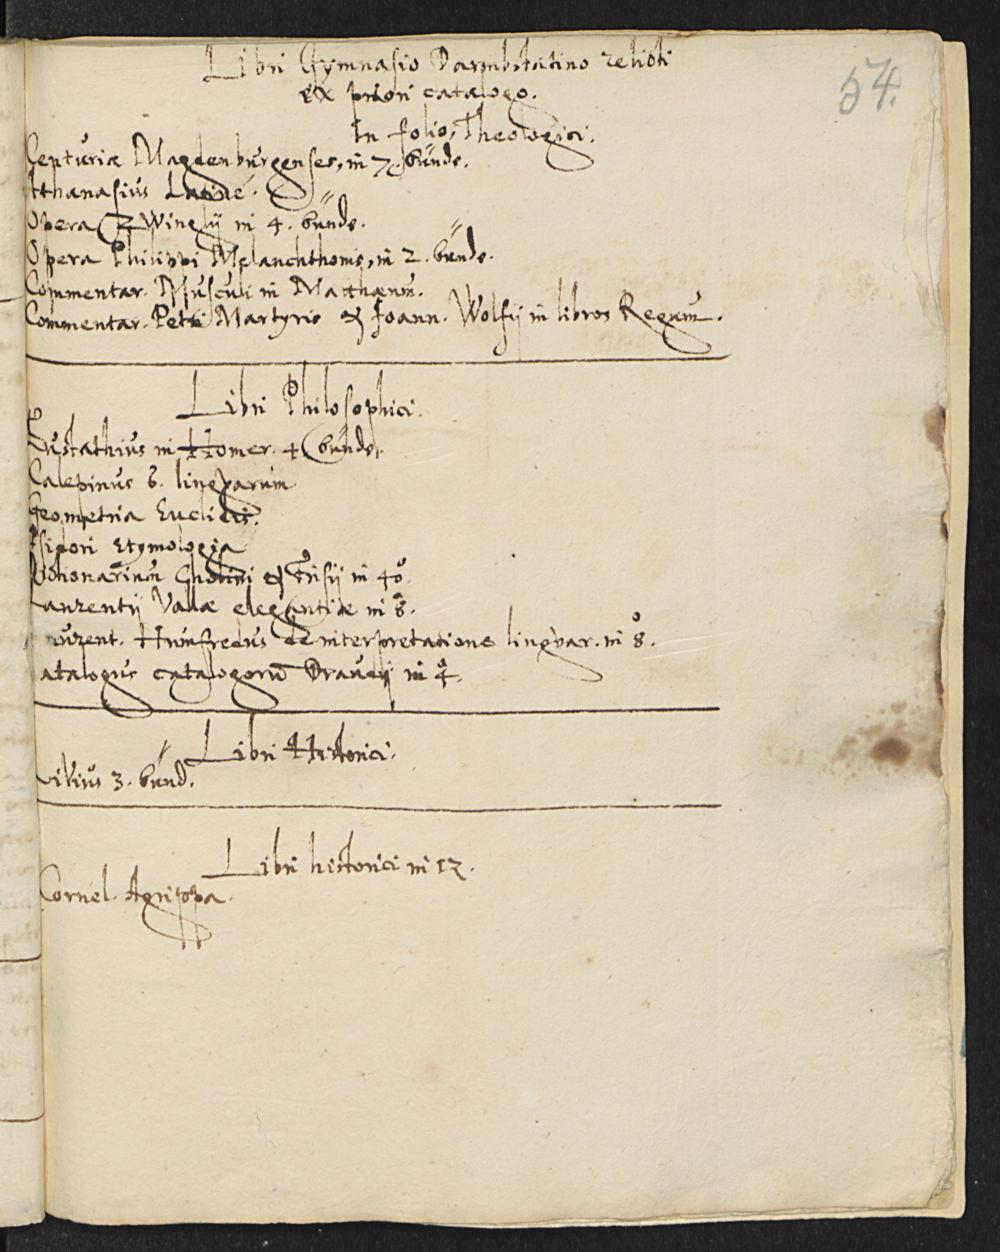 54.
Libri Gymnasio Darmbstatino relicti
ex priori catalogo.
In folio, Theologici.
Centuriæ Magdenburgenses, in 7. bünde.
Athanasius Latinè.
Opera Zwinglij in 4. bünde.
Opera Philippi Melanchthonis, in 2. bünde.
Commentar. Musculi in Matthæum.
Commentar. Petri Martyris & Joann. Wolfij in libros Regum.
Libri Philosophici.
Eustathius in Homer. 4 bünde.
Calepinus 8. linguarum
Geometria Euclidis.
Isidori Etymologia
Dictionarium Cholini & Frisij in 4o.
Laurentij Vallæ elegantiæ in 8.
Laurent. Humfredus de interpretatione linguar. in 8.
Catalogus catalogorum Draudij in 4.
Libri Historici.
Livius 3. bünd.
Libri historici in 12.
Cornel. Agrippa.